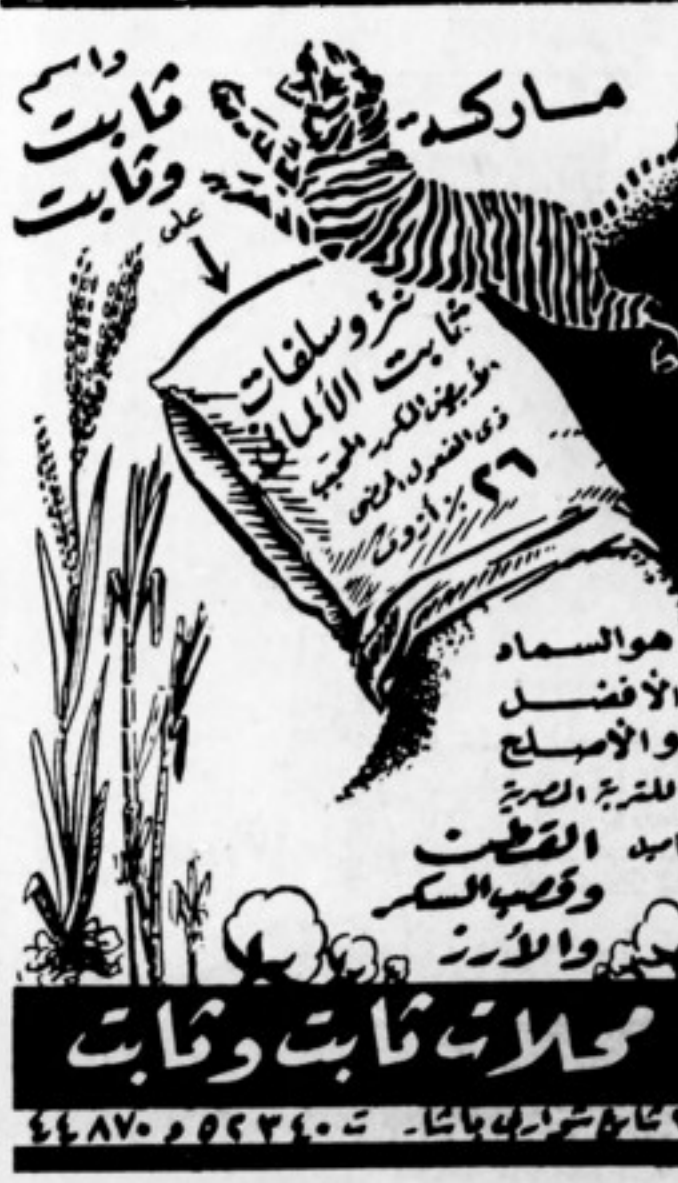 ماركة
واسم
ثابت
وثابت
على
نتروسلفات
ثابت الألمانى
الأبيض المكرر المحبب
ذى المفعول المرضى
٢٦ ٪ أزوت
هو السماد
الأفضل
والأصلح
للتربة المصرية
القطن
وقصب السكر
والأرز
محلات ثابت وثابت
شارع شواربى باشا - ت ٥٢٣٤٠ و ٤٤٨٧٠